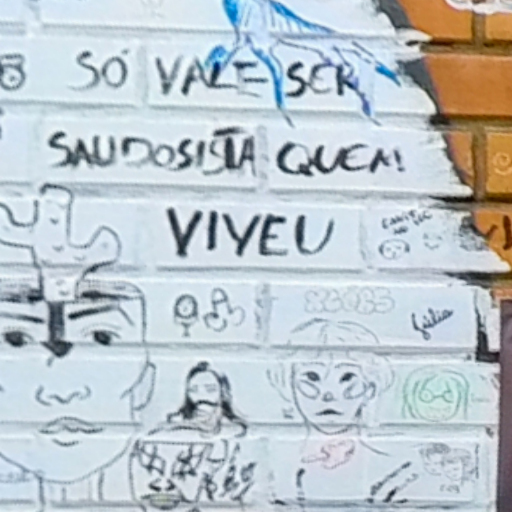 SÓ VALE SER
SAUDOSISTA QUEM
VIVEU
Júlia